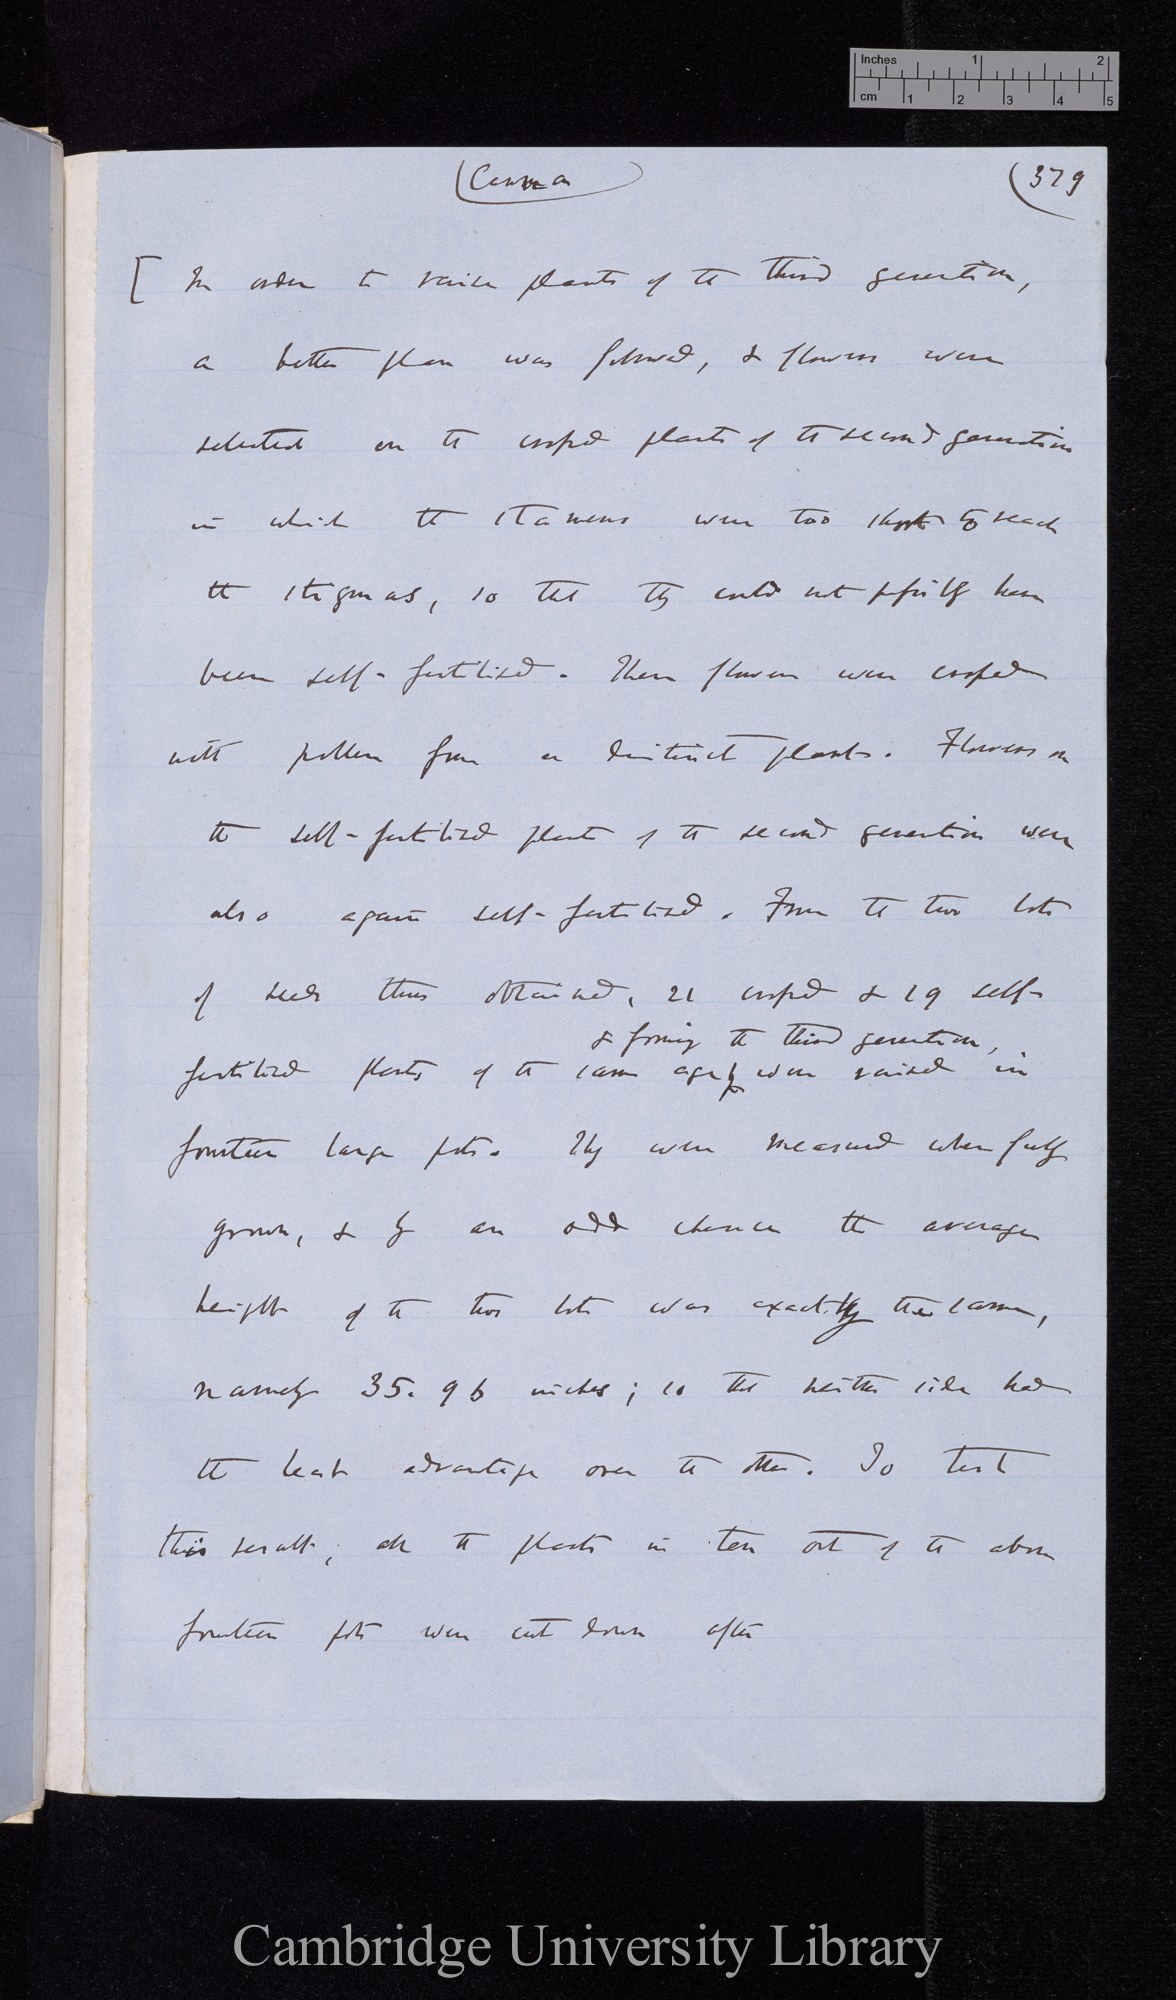 Inches 1 2
cm 1 2 3 4 5
(Canna
(379
[ In order to raise plants of the third generation,
a better plan was followed, & flowers were
selected on the crossed plants of the second generation
in which the stamens were too short to reach
the stigmas, so that they could not possibly have
been self-fertilised. These flowers were crossed
with pollen from a distinct plant. Flowers on
the self-fertilised plants of the second generation were
also again self-fertilised. From the two lots
of seeds thus obtained, 21 crossed & 19 self-
& forming the third generation,
fertilised plants of the same age were raised in
fourteen large pots. They were measured when fully
grown, & by an odd chance the average
height of the two lots was exactly the same,
namely 35.96 inches; so that neither side had
the least advantage over the other. To test
this result, all the plants in ten out of the above
fourteen pots were cut down after
Cambridge University Library